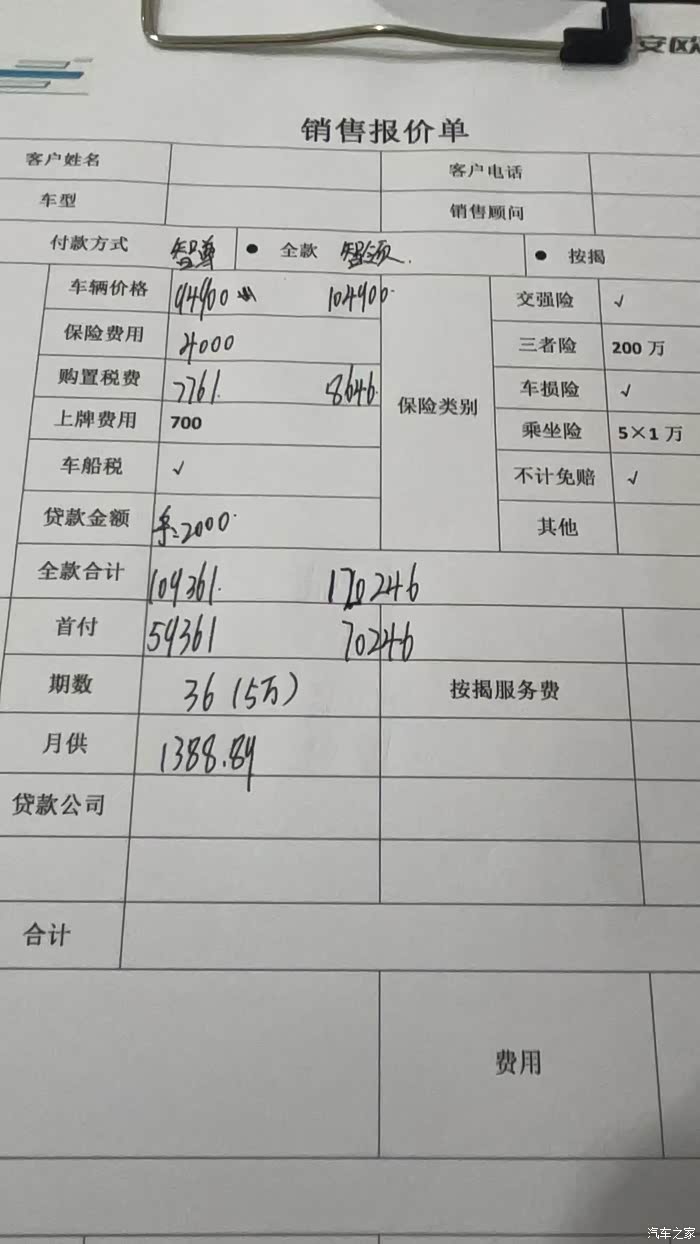 安欧
销售报价单
客户姓名 客户电话
车型 销售顾问
付款方式 智尊 ● 全款 智领. ● 按揭
车辆价格 94900 104900. 交强险 √
保险费用 4000 三者险 200万
购置税费 7761. 8646. 保险类别 车损险 √
上牌费用 700 乘坐险 5×1万
车船税 √ 不计免赔 √
贷款金额 2000. 其他
全款合计 109361. 120246
首付 59361 70246
期数 36 (5万) 按揭服务费
月供 1388.89
贷款公司
合计
费用
汽车之家